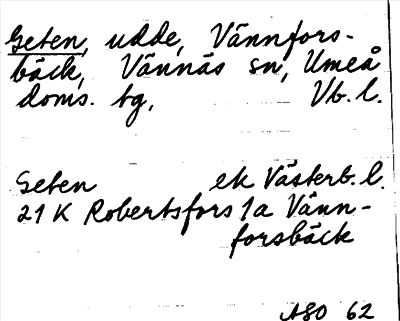 Geten, udde, Vännfors-
bäck, Vännäs sn, Umeå
doms. tg, Vb. l.
Geten ek Västerb. l.
21 K Robertsfors 1a Vänn-
forsbäck
ASO 62